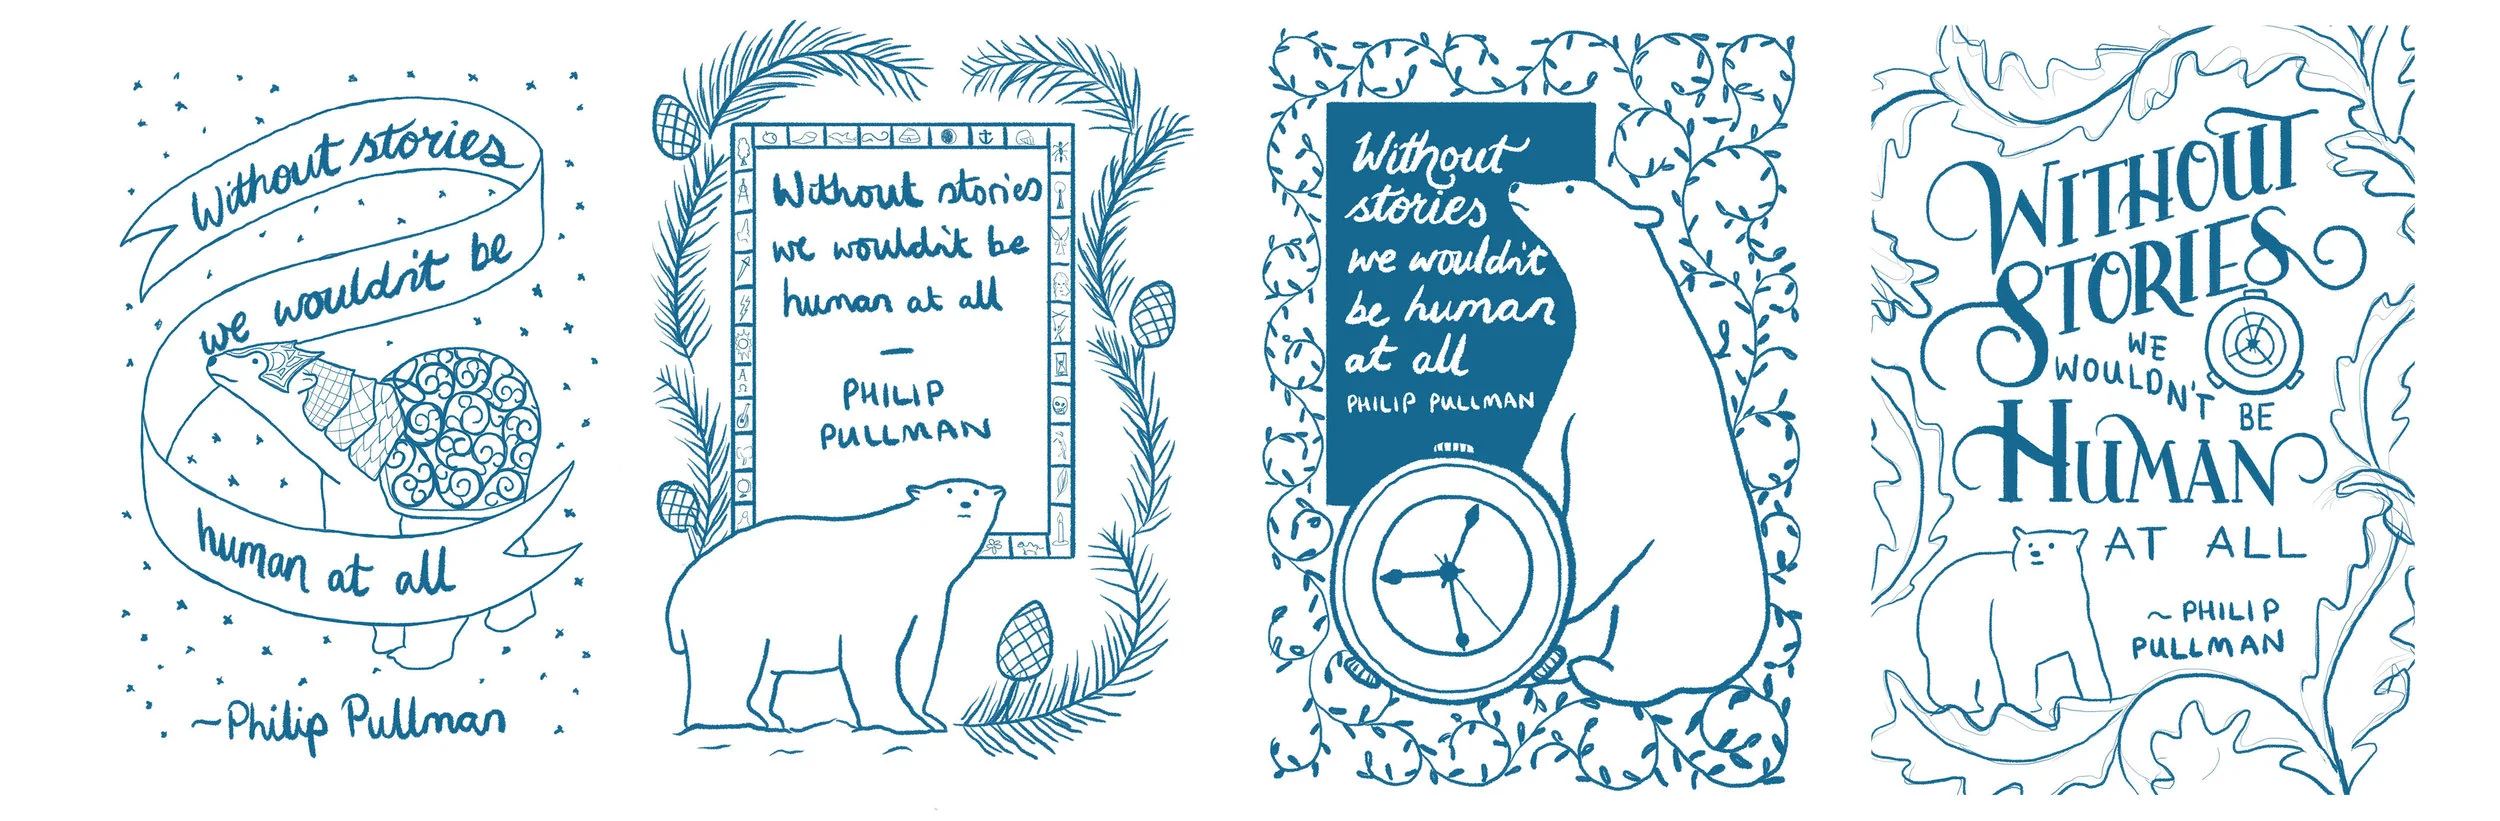 Without stories
we wouldn't be
human at all
~Philip Pullman
Without stories
we wouldn't be
human at all
—
PHILIP
PULLMAN
Without
stories
we wouldn't
be human
at all
PHILIP PULLMAN
WITHOUT
STORIES
WE
WOULDN'T
BE
HUMAN
AT ALL
~PHILIP
PULLMAN